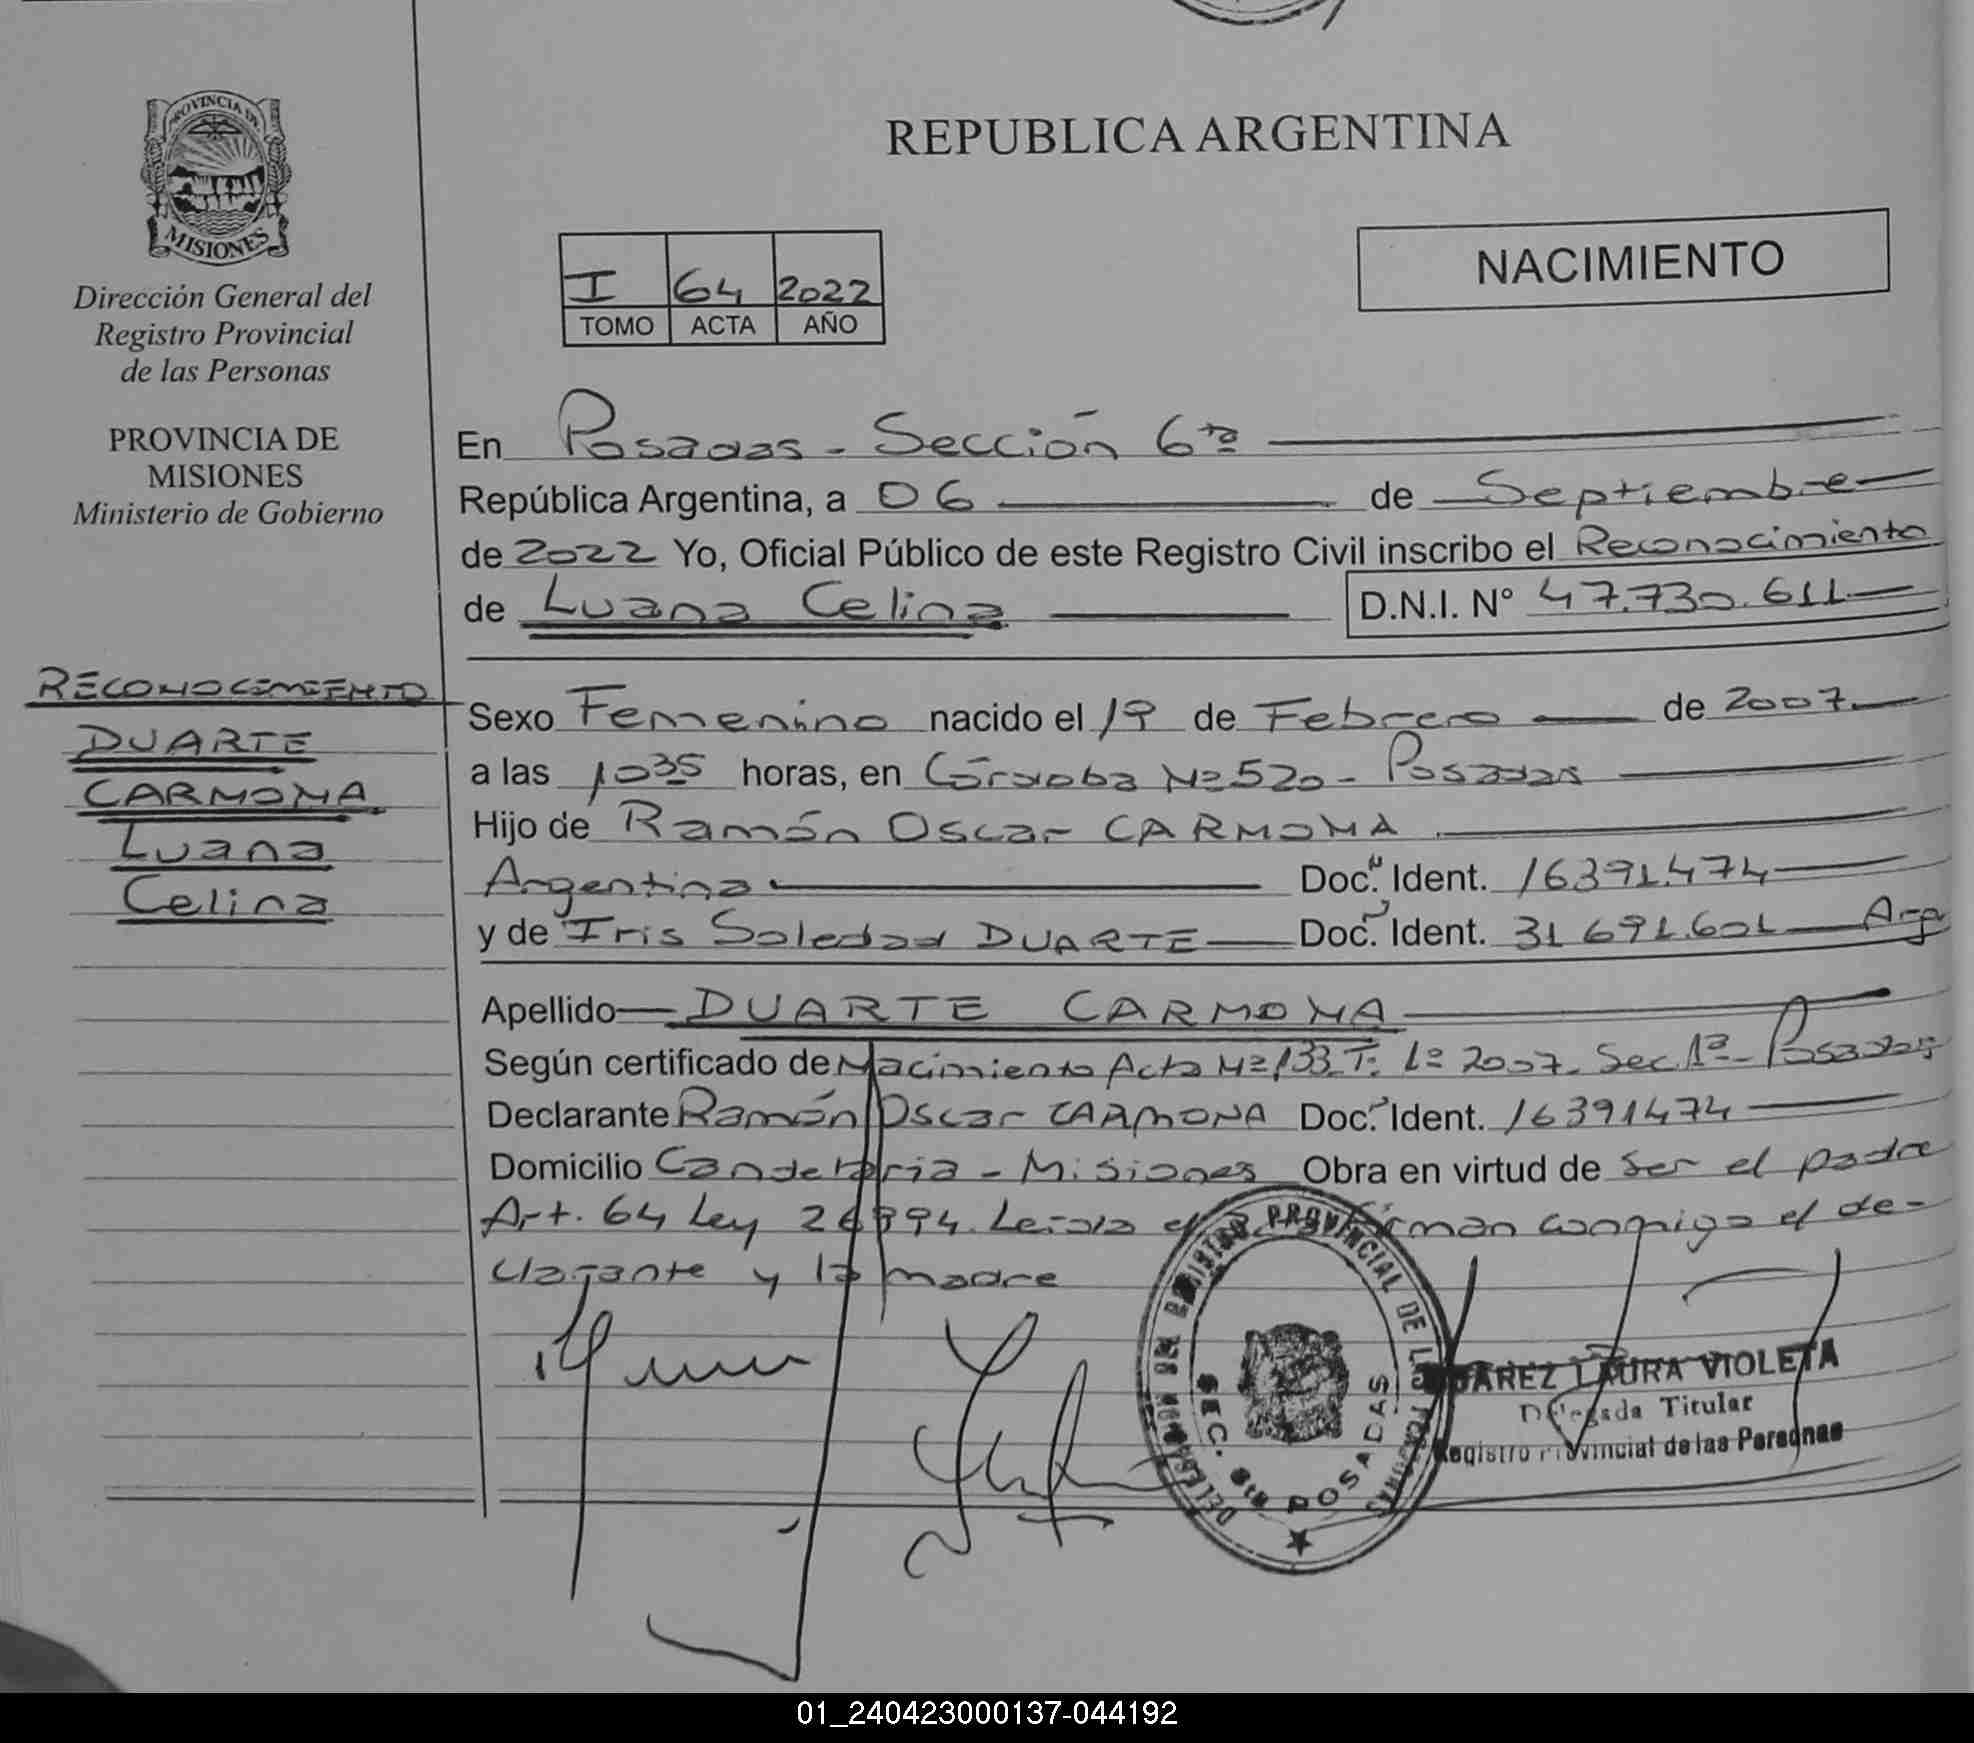 PROVINCIA DE
MISIONES
Dirección General del
Registro Provincial
de las Personas
PROVINCIA DE
MISIONES
Ministerio de Gobierno
RECONOCIMIENTO
DUARTE
CARMONA
Luana
Celina
REPUBLICA ARGENTINA
I 64 2022
TOMO ACTA AÑO
NACIMIENTO
En Posadas - Sección 6ta
República Argentina, a 06 de Septiembre
de 2022 Yo, Oficial Público de este Registro Civil inscribo el Reconocimiento
de Luana Celina D.N.I. N° 47.730.611
Sexo Femenino nacido el 19 de Febrero de 2007
a las 1035 horas, en Córdoba Nº 520 - Posadas
Hijo de Ramón Oscar CARMONA
Argentina Doc. Ident. 16391.474
y de Iris Soledad DUARTE Doc. Ident. 31 691.601 Arg
Apellido DUARTE CARMONA
Según certificado de Nacimiento Acta Nº 133 Tº 1º 2007. Sec. 1ª - Posadas
Declarante Ramón Oscar CARMONA Doc. Ident. 16391474
Domicilio Candelaria - Misiones Obra en virtud de ser el padre
Art. 64 Ley 26994. Leída el firman conmigo el de-
clarante y la madre
REGISTRO PROVINCIAL DE LAS PERSONAS
SEC. 6ta POSADAS
LAURA VIOLETA
Delegada Titular
Registro Provincial de las Personas
01_240423000137-044192